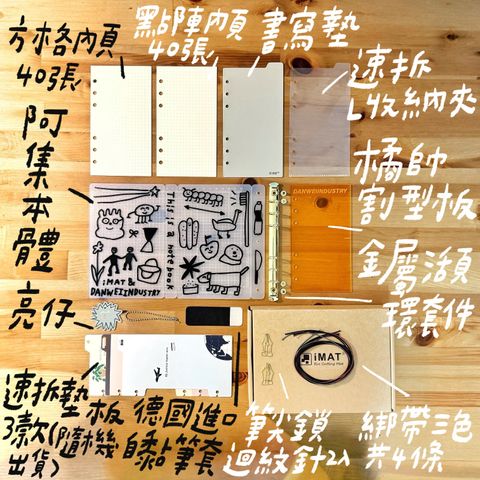 方格內頁
40張
點陣內頁
40張
書寫墊
速拆
L收納夾
阿集本體
橘帥
割型板
金屬活頁
環套件
亮仔
速拆墊板
3款(隨機
出貨)
德國進口
自黏筆套
筆尖鎖
迴紋針2入
綁帶三色
共4條
This is a note book
iMAT &
DANWEIINDUSTRY
DANWEIINDUSTRY
iMAT